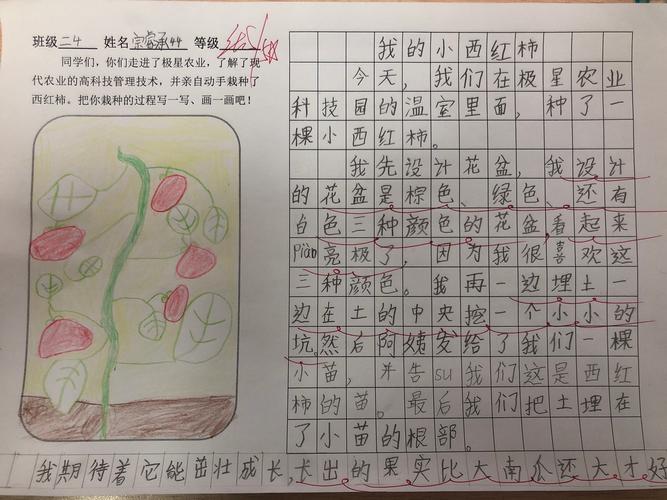 班级二4 姓名 等级
同学们，你们走进了极星农业，了解了现
代农业的高科技管理技术，并亲自动手栽种了
西红柿。把你栽种的过程写一写、画一画吧！
我的小西红柿
今天，我们在极星农业
科技园的温室里面，种了一
棵小西红柿。
我先设计花盆，我设计
的花盆是棕色、绿色、还有
白色三种颜色的花盆，看起来
piàn亮极了，因为我很喜欢这
三种颜色。我再一边埋土一
边在土的中央挖一个小小的
坑。然后阿姨发给了我们一棵
小苗，并告su我们这是西红
柿的苗。最后我们把土埋在
了小苗的根部。
我期待着它能茁壮成长，长出的果实比大南瓜还大才好